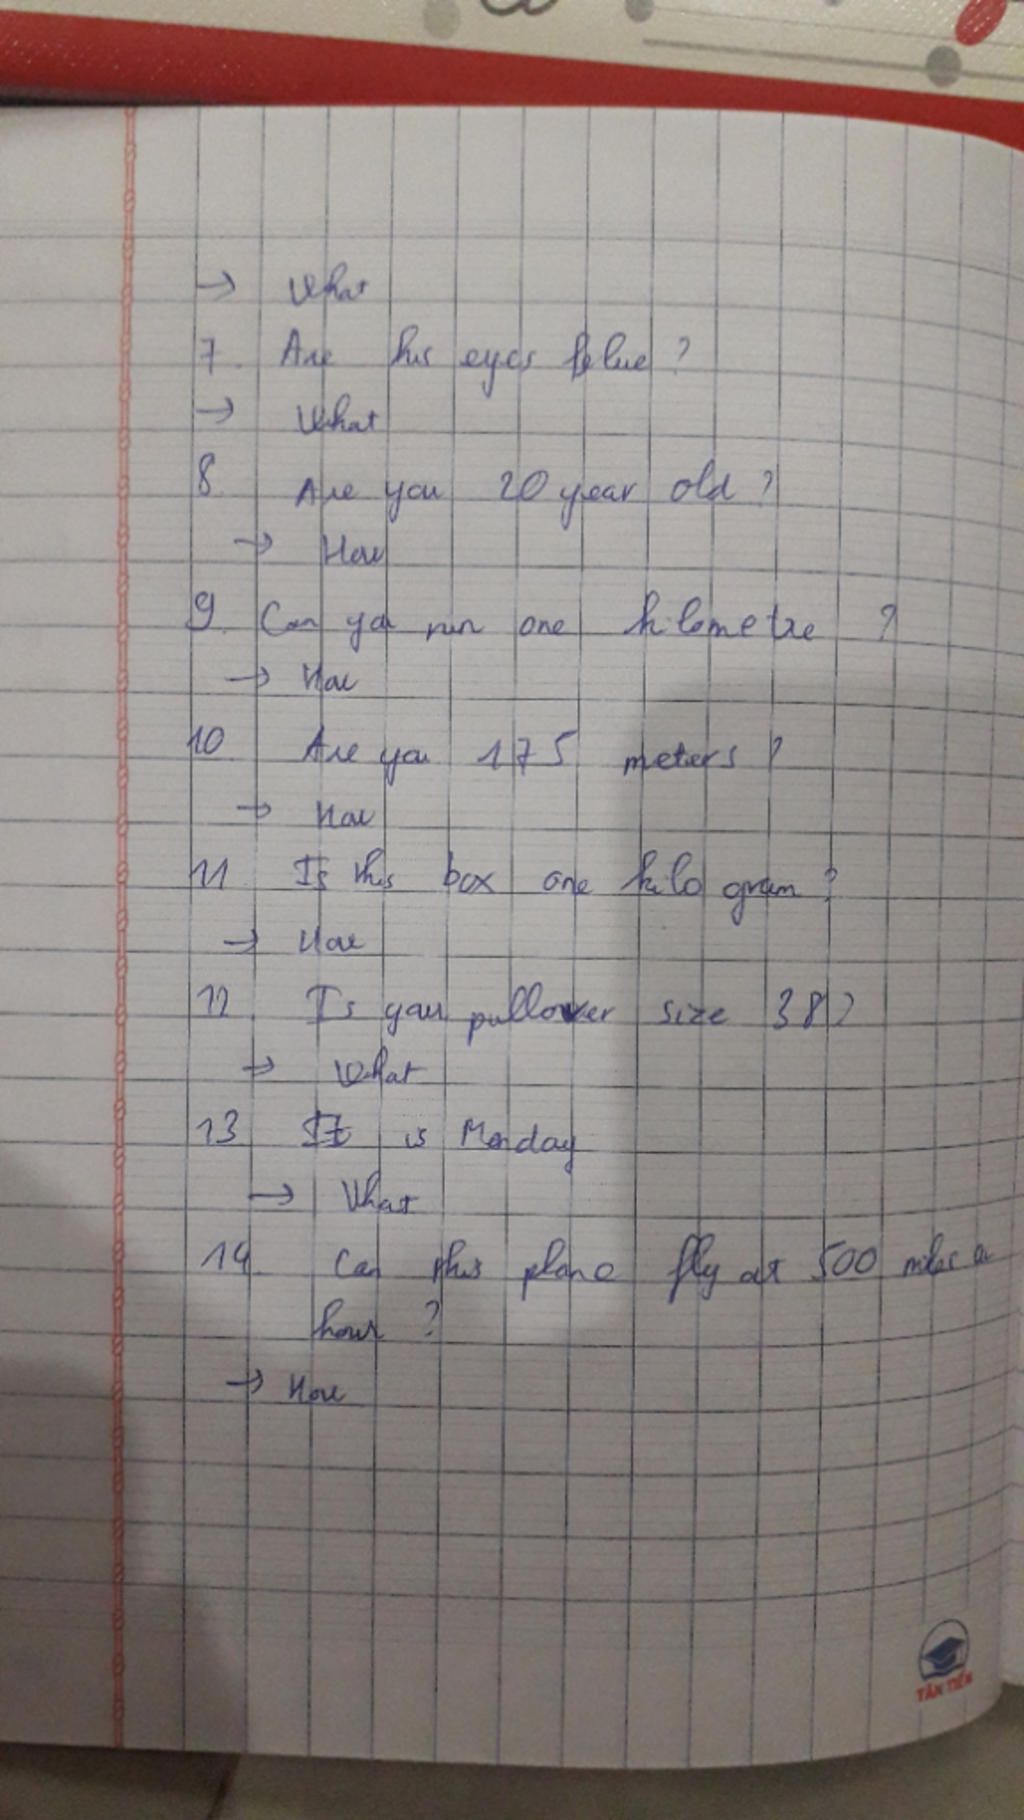 → What
7. Are his eyes blue ?
→ What
8 Are you 20 year old ?
→ How
9. Can you run one kilometre ?
→ How
10 Are you 175 meters ?
→ How
11 Is this box one kilo gram ?
→ How
12. Is your pullover size 38 ?
→ What
13 It is Monday
→ What
14. Can this plane fly at 500 miles a
hour ?
→ How
TÂN TIẾN